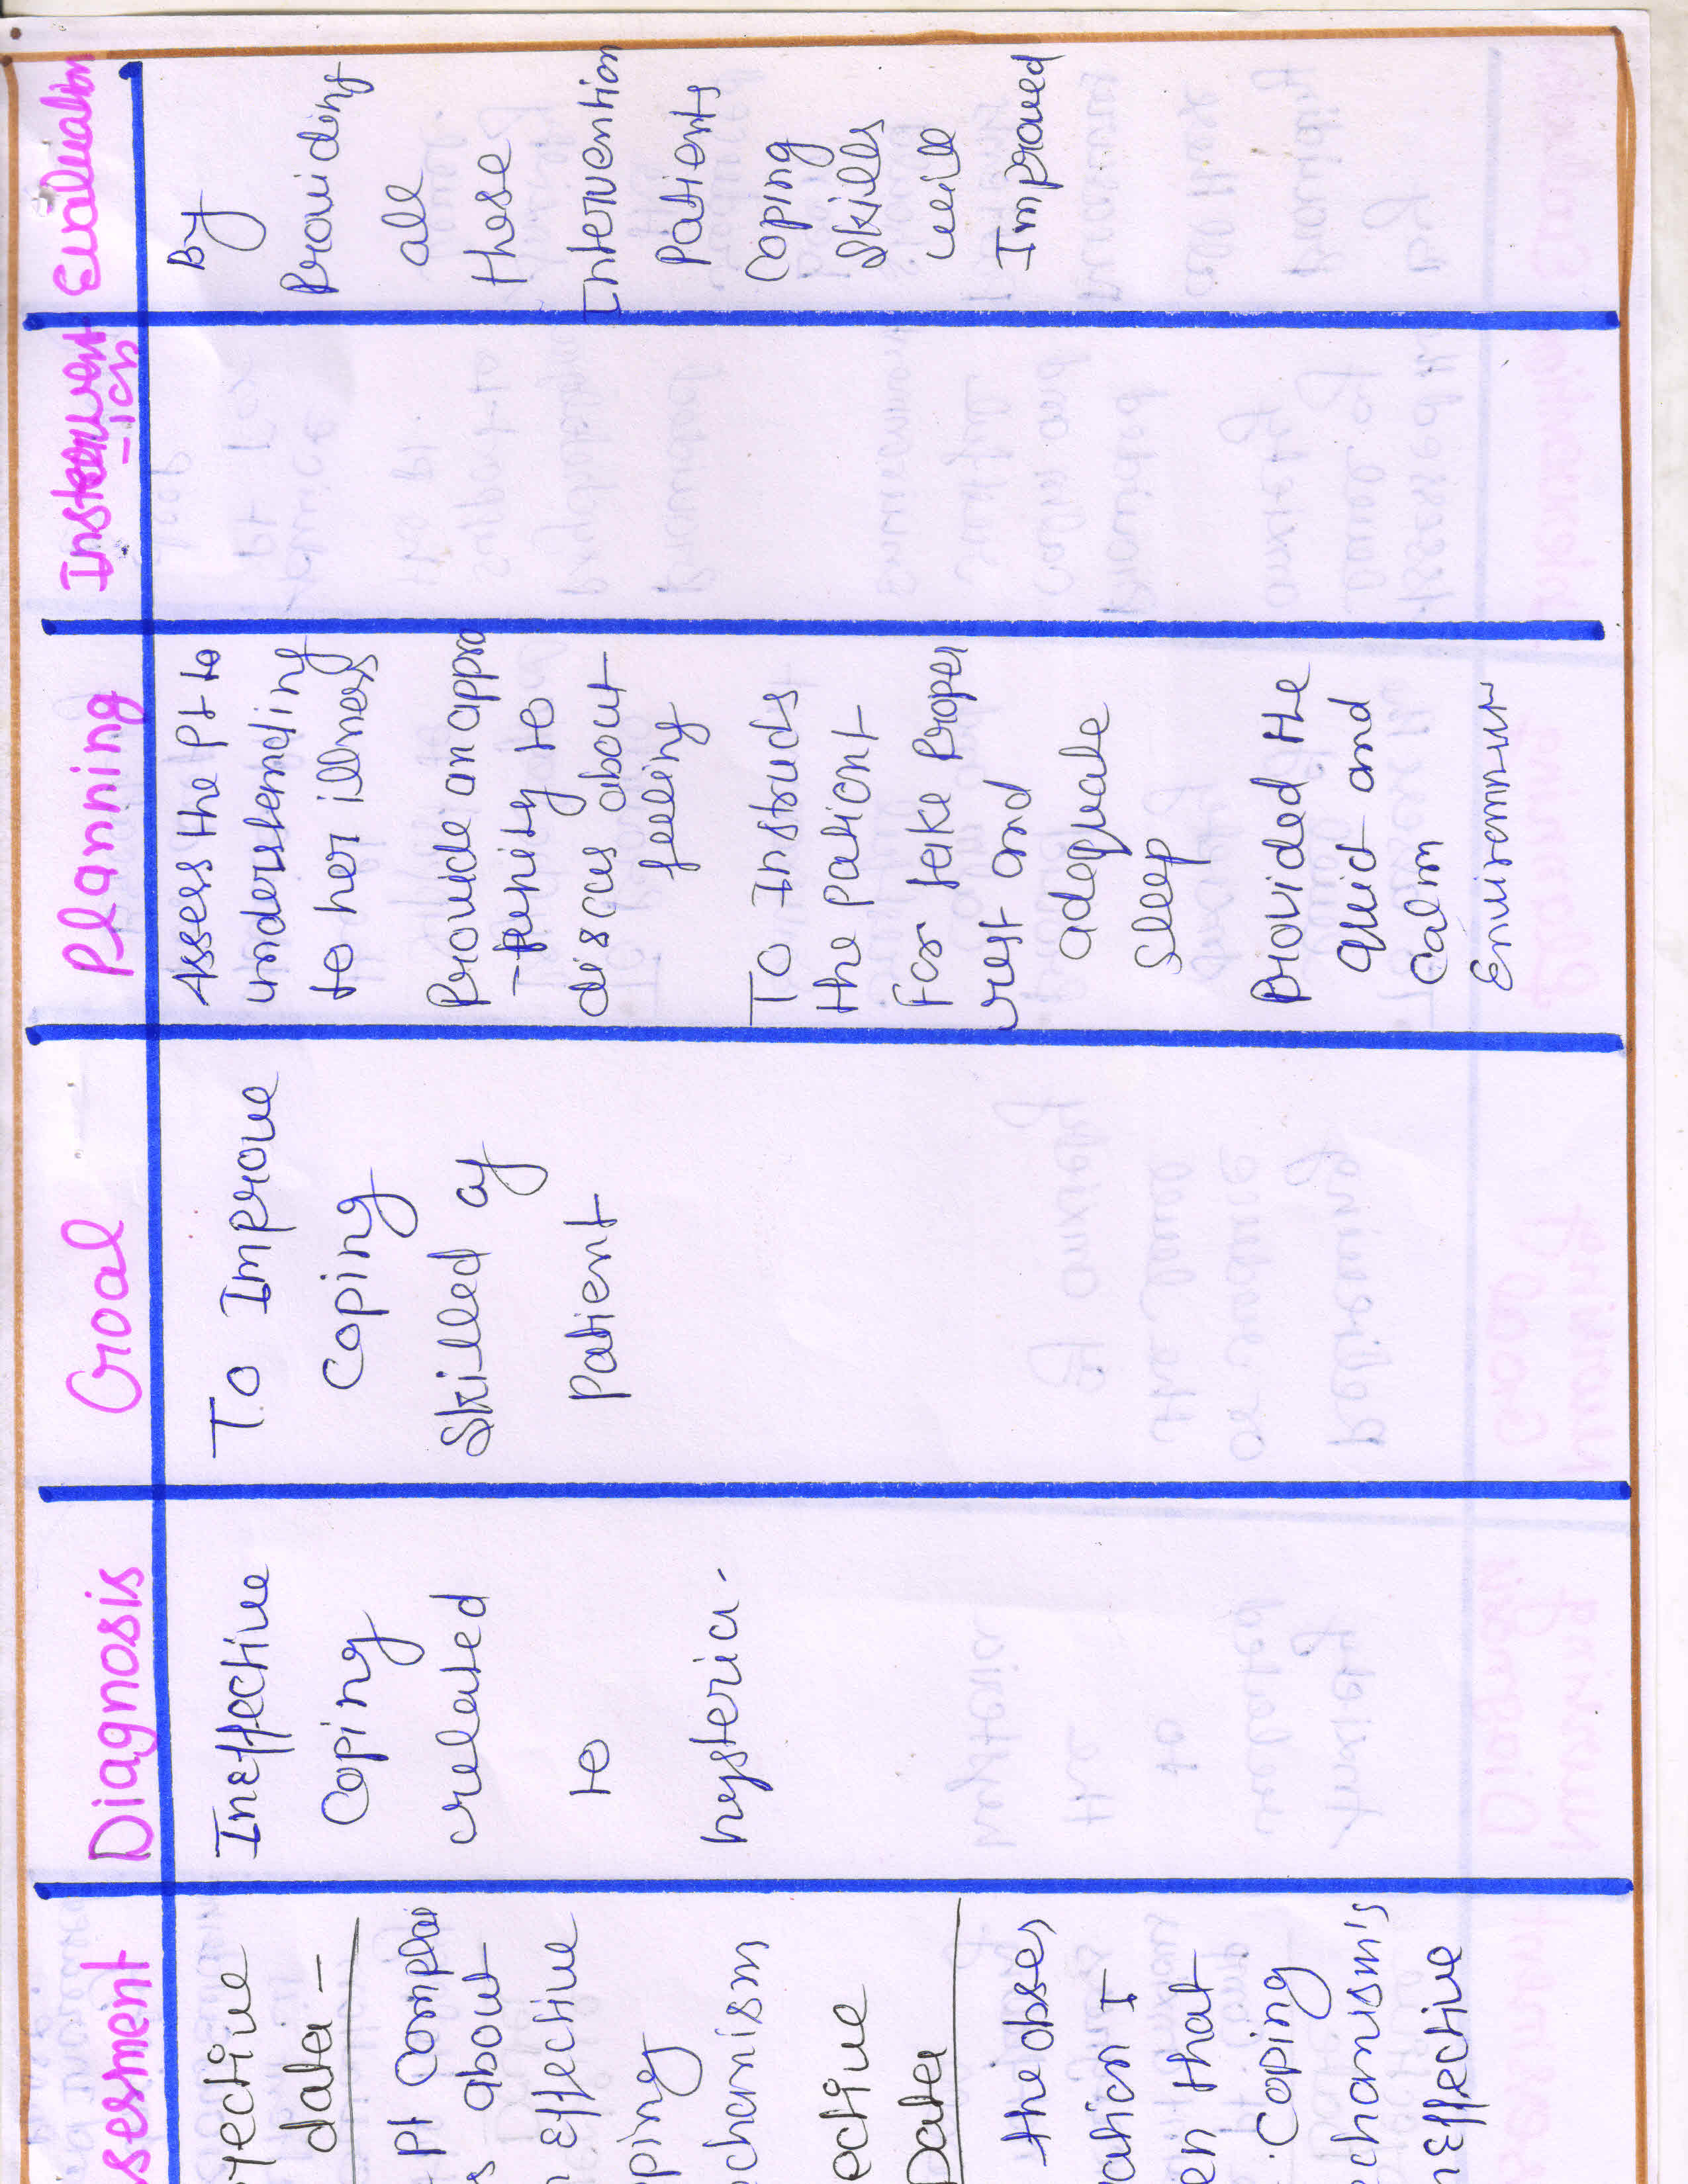 sesment
Diagnosis
Goal
Planning
Evaluation
yective
data -
Pt complai
s about
n Effective
pping
chanism
ective
Data
the obser
vation I
en that
. Coping
chanism's
nEffective
InEffective
Coping
related
to
hysteria.
To Improve
Coping
Skilled of
Patient
Assess the Pt to
understending
to her illness
Provide an appro
-tunity to
discus about
feeling
To Instruds
the patient
For take proper
rest and
adequate
Sleep
Provided the
Quit and
Calm
By
Providing
all
these
Intervention
Patients
Coping
Skills
will
Improved